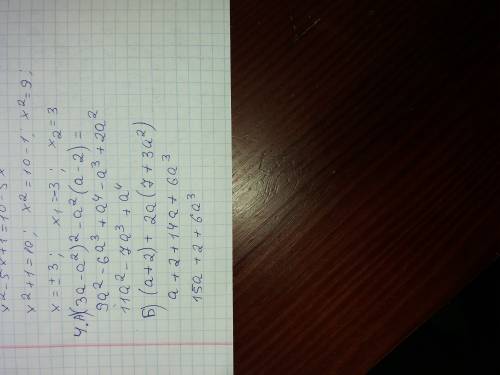 x²-5x+1=10-5x
x²+1=10; x²=10-1; x²=9;
x=±3; x₁=-3; x₂=3
4.А)(3a-a²)²-a²(a-2)=
9a²-6a³+a⁴-a³+2a²
11a²-7a³+a⁴
Б) (a+2)+2a(7+3a²)
a+2+14a+6a³
15a+2+6a³